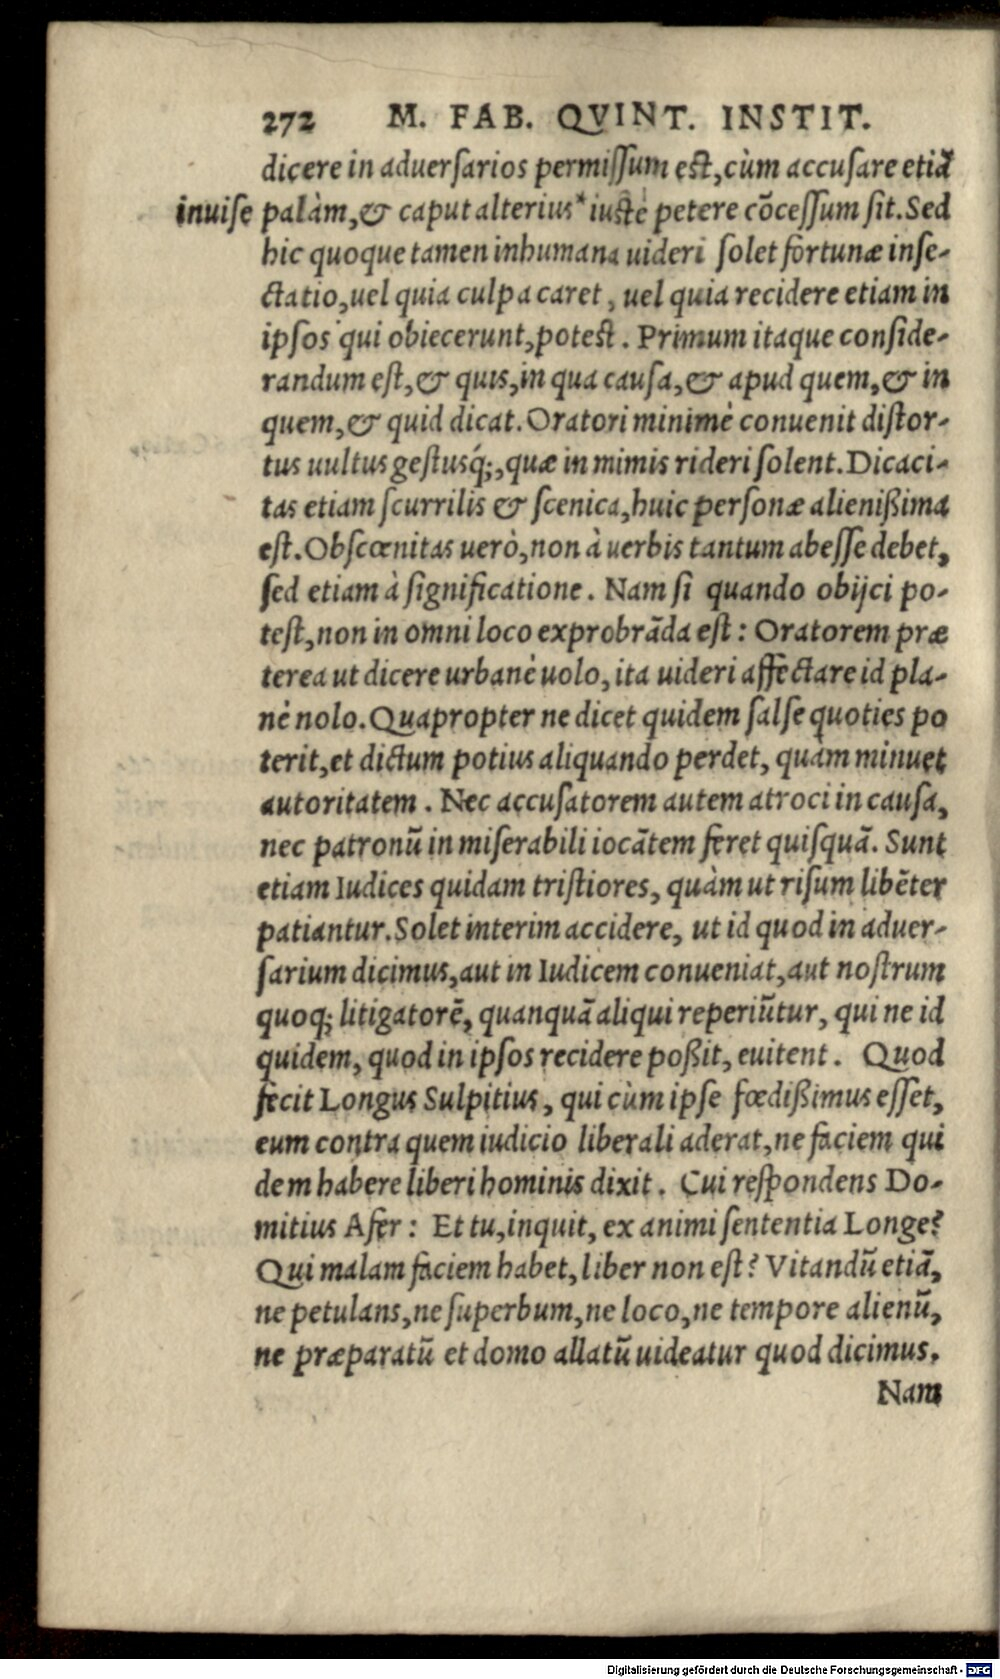 272 M. FAB. QVINT. INSTIT.
dicere in aduersarios permissum est, cùm accusare etiã
inuise palàm, & caput alterius* iustè petere cõcessum sit. Sed
hic quoque tamen inhumana uideri solet fortunæ inse-
ctatio, uel quia culpa caret, uel quia recidere etiam in
ipsos qui obiecerunt, potest. Primum itaque conside-
randum est, & quis, in qua causa, & apud quem, & in
quem, & quid dicat. Oratori minimè conuenit distor-
tus uultus gestusq́;, quæ in mimis rideri solent. Dicaci-
tas etiam scurrilis & scenica, huic personæ alienißima
est. Obscœnitas uerò, non à uerbis tantum abesse debet,
sed etiam à significatione. Nam si quando obijci po-
test, non in omni loco exprobrãda est: Oratorem præ
terea ut dicere urbanè uolo, ita uideri affectare id pla-
nè nolo. Quapropter ne dicet quidem salse quoties po
terit, et dictum potius aliquando perdet, quàm minuet
autoritatem. Nec accusatorem autem atroci in causa,
nec patronũ in miserabili iocãtem feret quisquã. Sunt
etiam Iudices quidam tristiores, quàm ut risum libẽter
patiantur. Solet interim accidere, ut id quod in aduer-
sarium dicimus, aut in Iudicem conueniat, aut nostrum
quoq; litigatorẽ, quanquã aliqui reperiũtur, qui ne id
quidem, quod in ipsos recidere poßit, euitent. Quod
fecit Longus Sulpitius, qui cùm ipse fœdißimus esset,
eum contra quem iudicio liberali aderat, ne faciem qui
dem habere liberi hominis dixit. Cui respondens Do-
mitius Afer: Et tu, inquit, ex animi sententia Longe?
Qui malam faciem habet, liber non est? Vitandũ etiã,
ne petulans, ne superbum, ne loco, ne tempore alienũ,
ne præparatũ et domo allatũ uideatur quod dicimus.
Nam
Digitalisierung gefördert durch die Deutsche Forschungsgemeinschaft - DFG